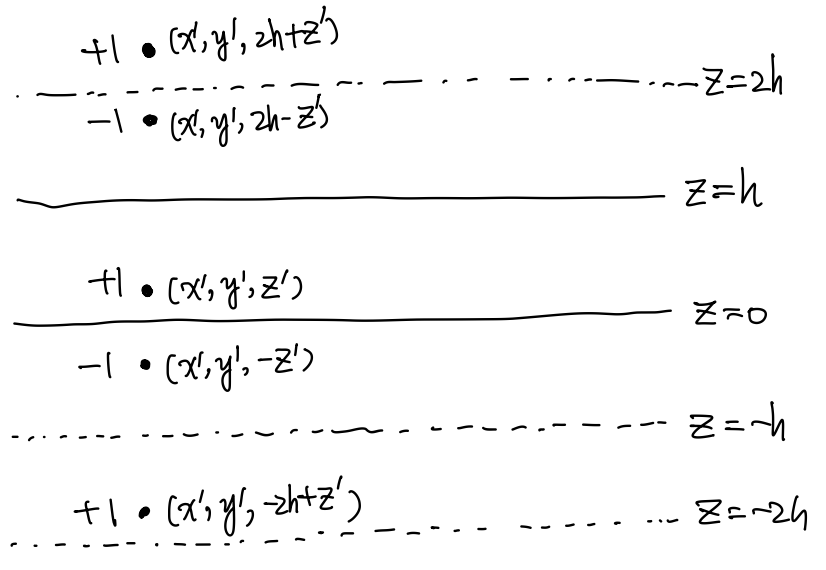 +1 • (x', y', 2h+z')
z=2h
-1 • (x', y', 2h-z')
z=h
+1 • (x', y', z')
z=0
-1 • (x', y', -z')
z=-h
+1 • (x', y', -2h+z')
z=-2h